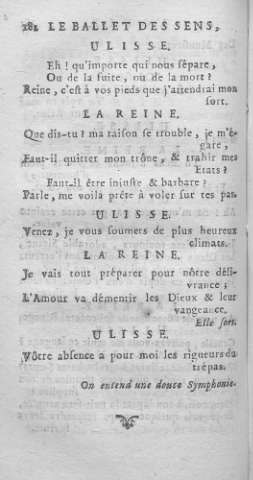 182 LE BALLET DES SENS,
ULISSE.
Eh ! qu'importe qui nous sépare,
Ou de la fuite, ou de la mort ?
Reine, c'est à vos pieds que j'attendrai mon
sort.
LA REINE.
Que dis-tu ? ma raison se trouble, je m'é-
gare,
Faut-il quitter mon trône, & trahir mes
Etats ?
Faut-il être injuste & barbare ?
Parle, me voilà prête à voler sur tes pas.
ULISSE.
Venez, je vous soumets de plus heureux
climats.
LA REINE.
Je vais tout préparer pour nôtre déli-
vrance ;
L'Amour va démentir les Dieux & leur
vangeance.
Elle sort.
ULISSE.
Vôtre absence a pour moi les rigueurs du
trépas.
On entend une douce Symphonie.